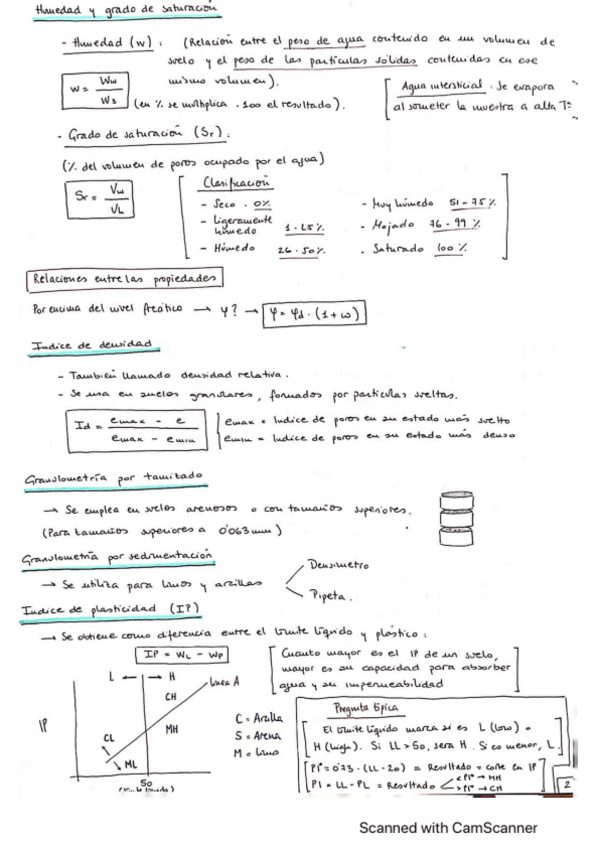 Humedad y grado de saturación
- Humedad (w) : (Relación entre el peso de agua contenido en un volumen de
suelo y el peso de las partículas solidas contenidas en ese
mismo volumen).
w = Ww / Ws
(en % se multiplica · 100 el resultado).
[Agua intersticial : Se evapora
al someter la muestra a alta Tª
- Grado de saturación (Sr) :
(% del volumen de poros ocupado por el agua)
Sr = Vw / VL
Clasificación
- Seco · 0%
- Ligeramente
húmedo 1 - 25%
- Húmedo 26 - 50%
- Muy húmedo 51 - 75%
- Mojado 76 - 99%
- Saturado 100%
Relaciones entre las propiedades
Por encima del nivel freático → γ? → γ = γd · (1 + w)
Indice de densidad
- También llamado densidad relativa.
- Se usa en suelos granulares, formados por partículas sueltas.
Id = emax - e / emax - emin
emax = Indice de poros en su estado más suelto
emin = Indice de poros en su estado más denso
Granulometría por tamizado
→ Se emplea en suelos arenosos o con tamaños superiores.
(Para tamaños superiores a 0'063 mm)
Granulometría por sedimentación
→ Se utiliza para limos y arcillas
Densimetro
Pipeta.
Indice de plasticidad (IP)
→ Se obtiene como diferencia entre el límite líquido y plástico :
IP = WL - Wp
[Cuanto mayor es el IP de un suelo,
mayor es su capacidad para absorber
agua y su impermeabilidad]
L ← → H
línea A
CH
IP
MH
CL
ML
50
C = Arcilla
S = Arena
M = Limo
Pregunta típica
[El límite líquido marca si es L (low) o
H (high). Si LL > 50, será H. Si es menor, L.]
[PI* = 0'73 · (LL - 20) = Resultado = corte en IP]
PI = LL - PL = Resultado < PI* → MH
> PI* → CH
2
Scanned with CamScanner